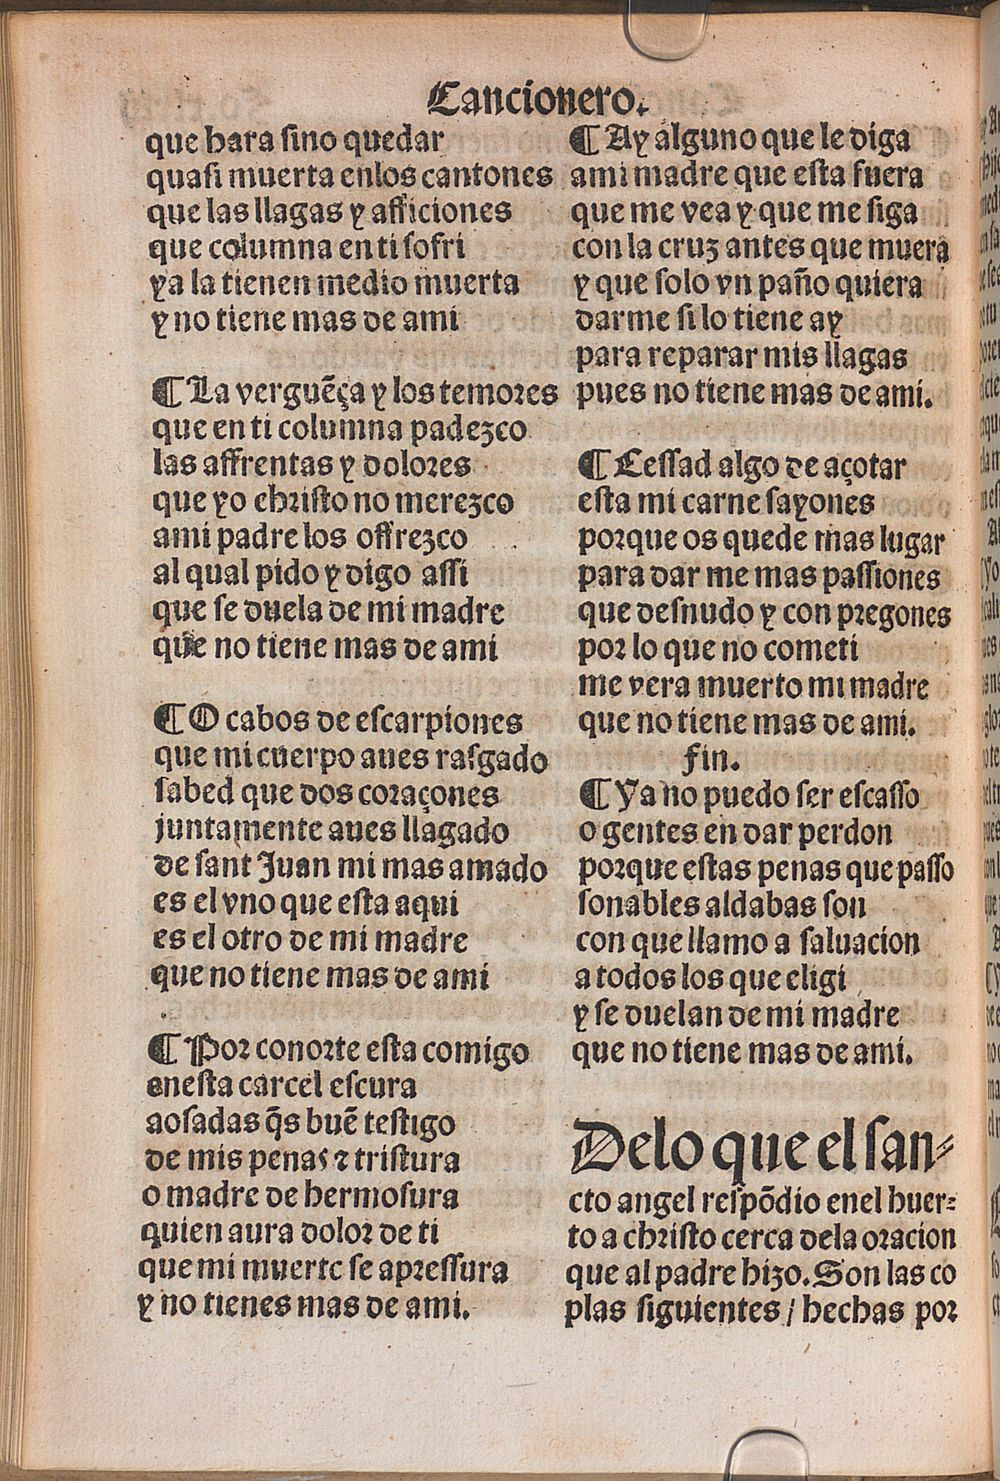 Cancionero.
que hara sino quedar
quasi muerta enlos cantones
que las llagas y afficiones
que columna en ti sofri
ya la tienen medio muerta
y no tiene mas de ami
¶ La verguẽça y los temores
que en ti columna padezco
las affrentas y dolores
que yo christo no merezco
ami padre los offrezco
al qual pido y digo assi
que se duela de mi madre
que no tiene mas de ami
¶ O cabos de escarpiones
que mi cuerpo aues rasgado
sabed que dos coraçones
juntamente aues llagado
de sant Juan mi mas amado
es el vno que esta aqui
es el otro de mi madre
que no tiene mas de ami
¶ Por conorte esta comigo
enesta carcel escura
aosadas q̃s buẽ testigo
de mis penas ⁊ tristura
o madre de hermosura
quien aura dolor de ti
que mi muerte se apressura
y no tienes mas de ami.
¶ Ay alguno que le diga
ami madre que esta fuera
que me vea y que me siga
con la cruz antes que muera
y que solo vn paño quiera
darme si lo tiene ay
para reparar mis llagas
pues no tiene mas de ami.
¶ Cessad algo de açotar
esta mi carne sayones
porque os quede mas lugar
para dar me mas passiones
que desnudo y con pregones
por lo que no cometi
me vera muerto mi madre
que no tiene mas de ami.
fin.
¶ Ya no puedo ser escasso
o gentes en dar perdon
porque estas penas que passo
sonables aldabas son
con que llamo a saluacion
a todos los que eligi
y se duelan de mi madre
que no tiene mas de ami.
Delo que el san-
cto angel respõdio enel huer-
to a christo cerca dela oracion
que al padre hizo. Son las co
plas siguientes / hechas por